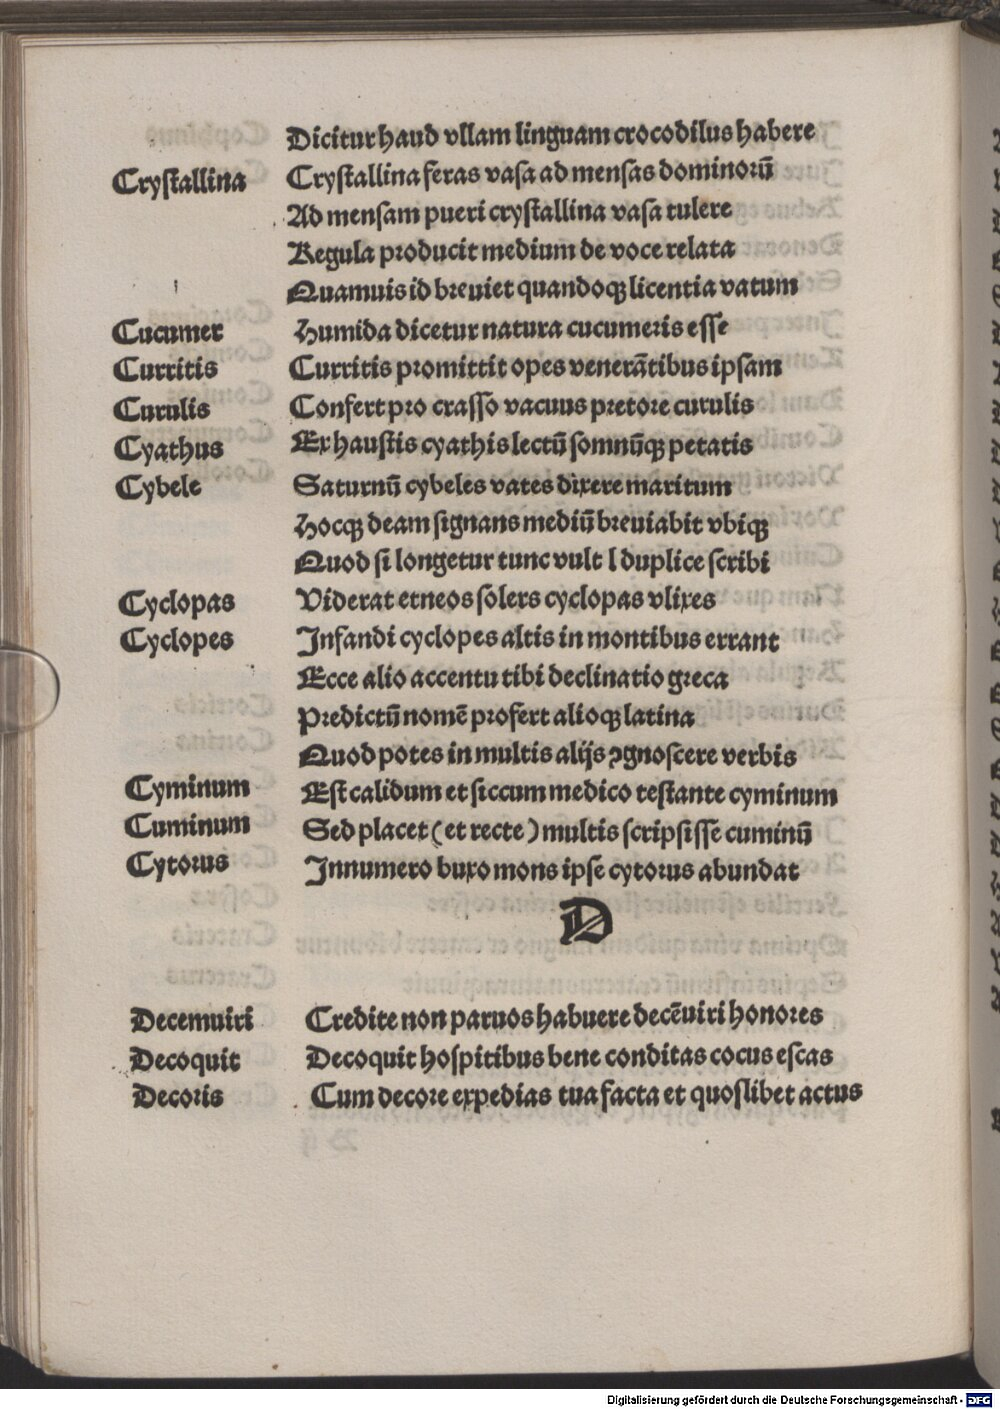 Dicitur haud vllam linguam crocodilus habere
Crystallina Crystallina feras vasa ad mensas dominorū
Ad mensam pueri crystallina vasa tulere
Regula producit medium de voce relata
Quamuis id breuiet quandoqꝫ licentia vatum
Cucumer Humida dicetur natura cucumeris esse
Curritis Curritis promittit opes venerātibus ipsam
Curulis Confert pro crasso vacuus pretore curulis
Cyathus Exhaustis cyathis lectū somnūqꝫ petatis
Cybele Saturnū cybeles vates dixere maritum
Hocqꝫ deam signans mediū breuiabit vbiqꝫ
Quod si longetur tunc vult l duplice scribi
Cyclopas Viderat etneos solers cyclopas vlixes
Cyclopes Infandi cyclopes altis in montibus errant
Ecce alio accentu tibi declinatio greca
Predictū nomē profert alioqꝫ latina
Quod potes in multis alijs ꝯgnoscere verbis
Cyminum Est calidum et siccum medico testante cyminum
Cuminum Sed placet (et recte) multis scripsisse cuminū
Cytorus Innumero buxo mons ipse cytorus abundat
D
Decemuiri Credite non paruos habuere decēuiri honores
Decoquit Decoquit hospitibus bene conditas cocus escas
Decoris Cum decore expedias tua facta et quoslibet actus
Digitalisierung gefördert durch die Deutsche Forschungsgemeinschaft - DFG